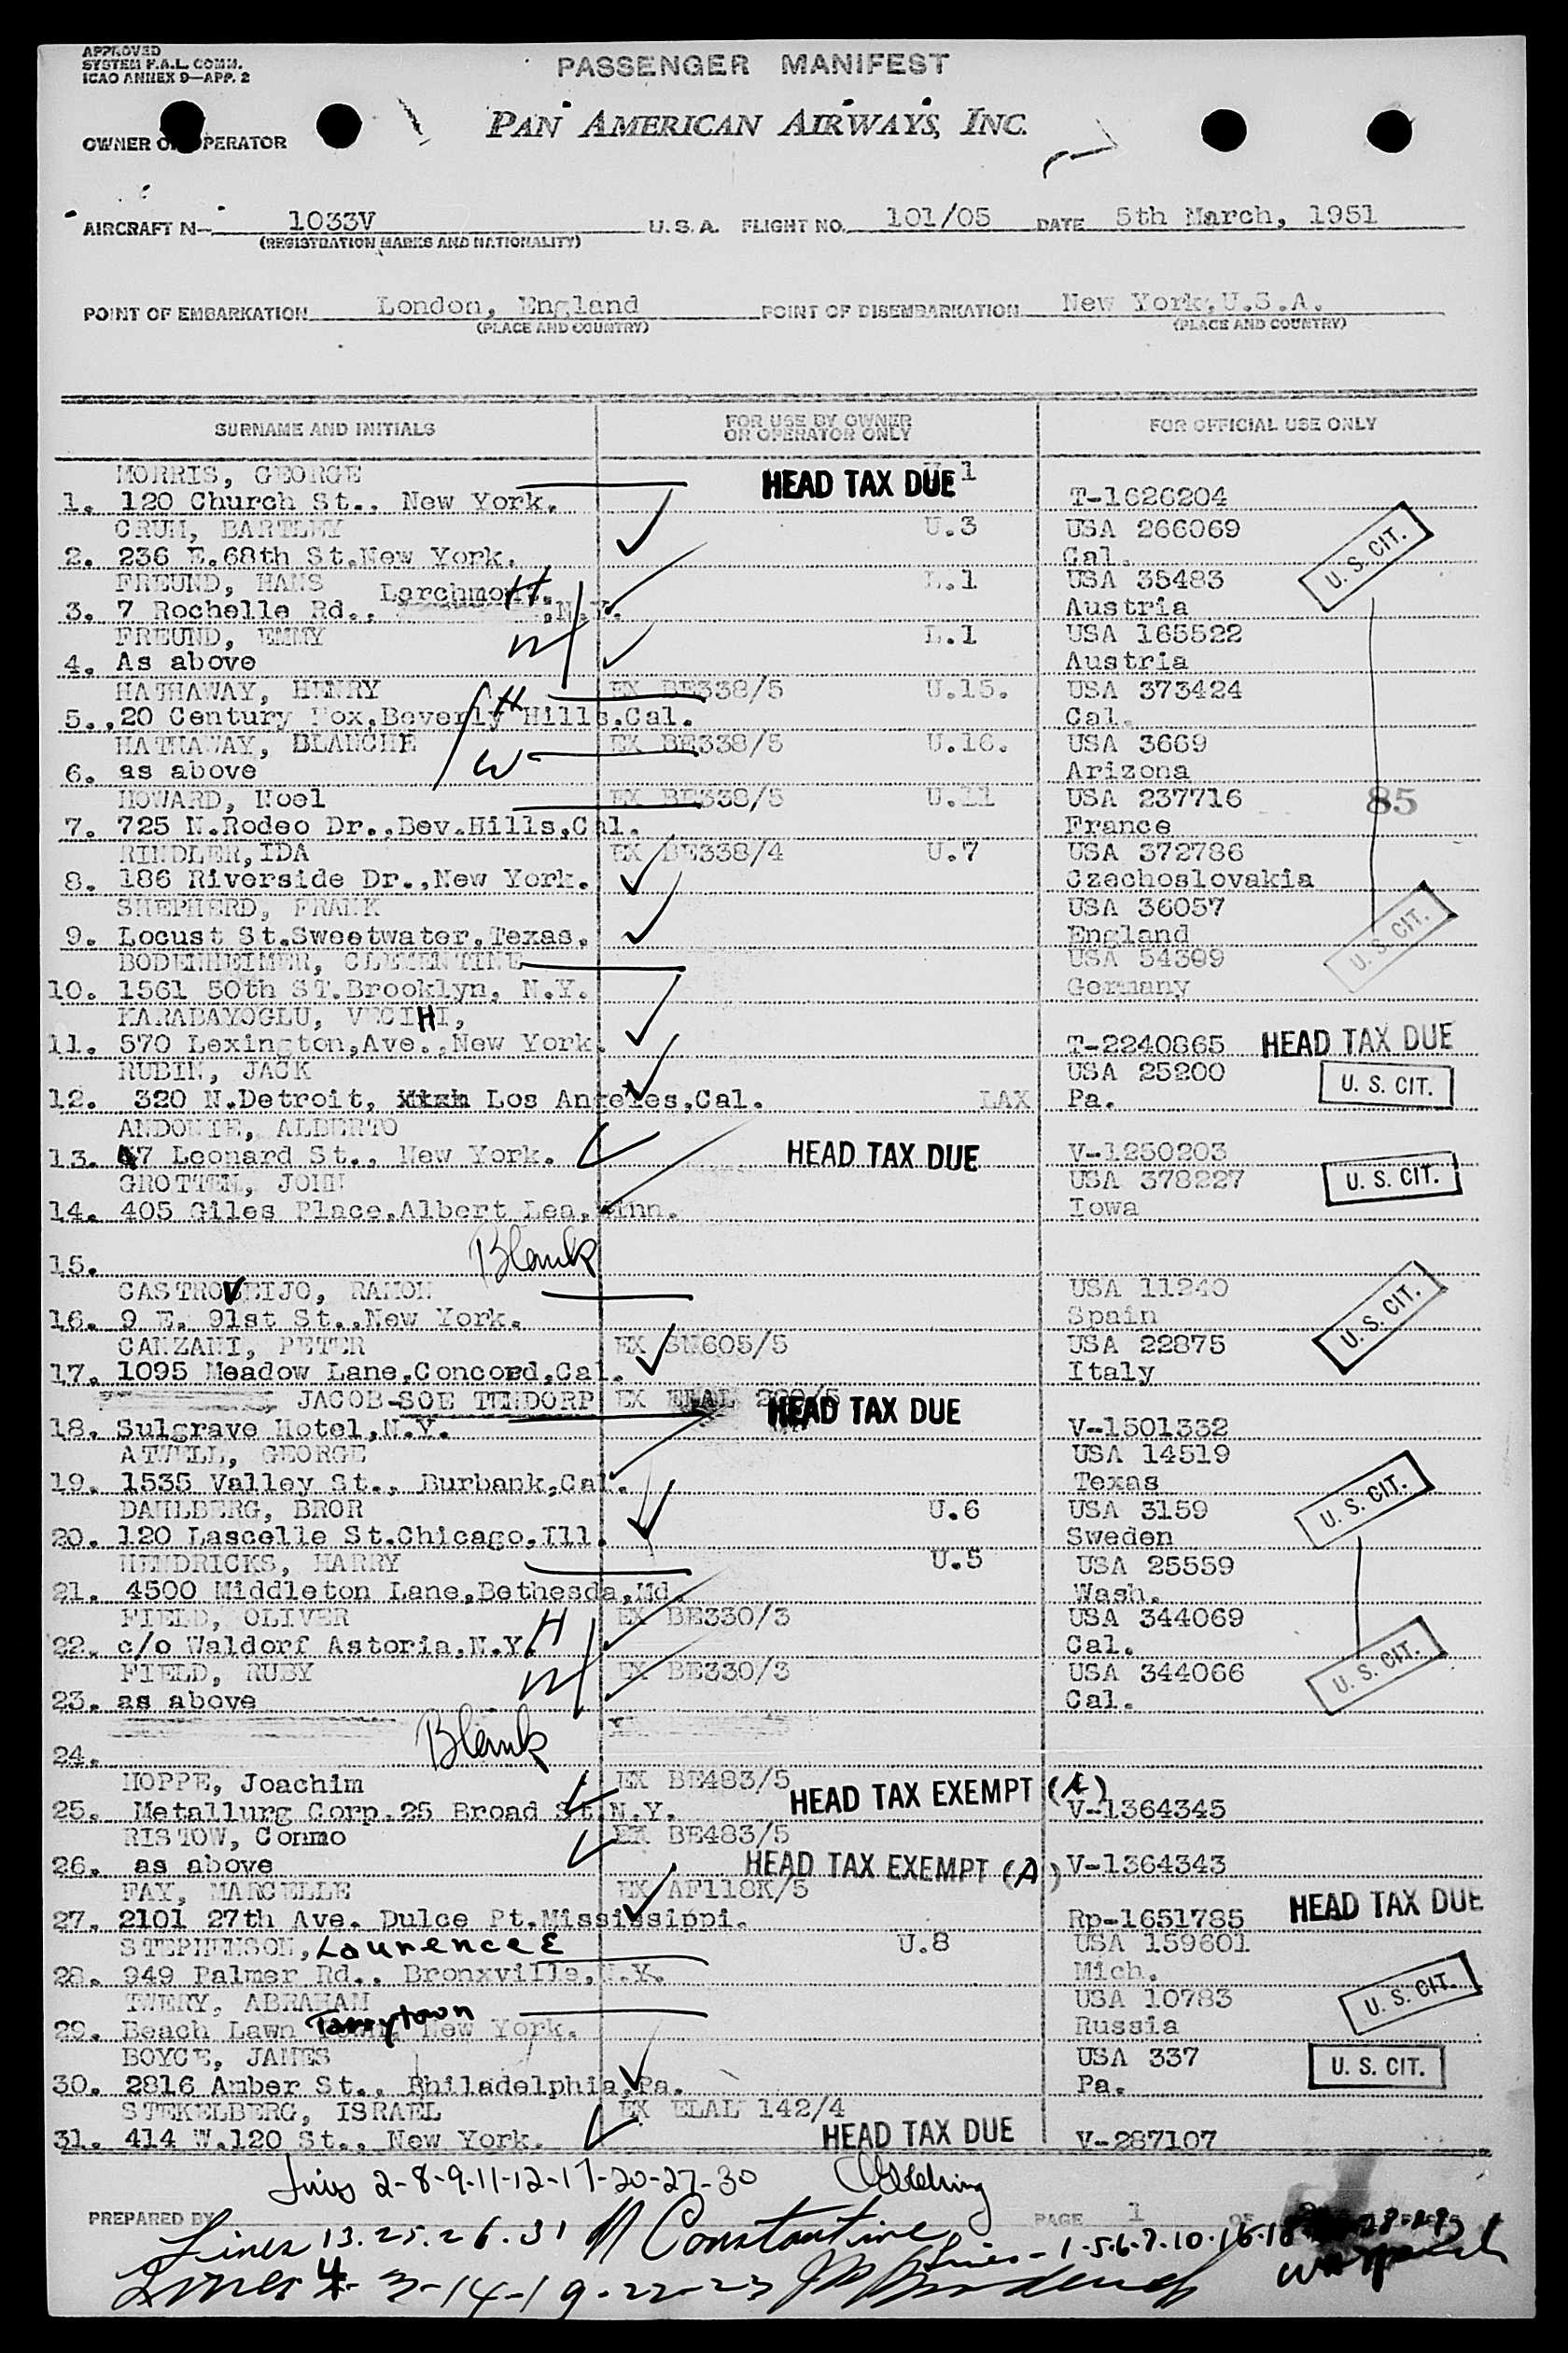 APPROVED
SYSTEM F.A.L. COMM.
ICAO ANNEX 9—APP. 2
PASSENGER MANIFEST
PAN AMERICAN AIRWAYS, INC.
OWNER OR OPERATOR
AIRCRAFT N- 1033V U.S.A. FLIGHT NO. 101/05 DATE 5th March, 1951
(REGISTRATION MARKS AND NATIONALITY)
POINT OF EMBARKATION London, England POINT OF DISEMBARKATION New York,U.S.A.
(PLACE AND COUNTRY) (PLACE AND COUNTRY)
SURNAME AND INITIALS FOR USE BY OWNER OR OPERATOR ONLY FOR OFFICIAL USE ONLY
MORRIS, GEORGE HEAD TAX DUE U.1
1. 120 Church St., New York. T-1626204
CRUM, BARTLEY U.3 USA 266069
2. 236 E.68th St.New York. Cal. U. S. CIT.
FREUND, HANS Larchmont. H L.1 USA 35483
3. 7 Rochelle Rd., ,N.Y. Austria
FREUND, EMMY W L.1 USA 165522
4. As above Austria
HATHAWAY, HENRY H EX BE338/5 U.15. USA 373424
5.,20 Century Fox,Beverly Hills,Cal. Cal.
HATHAWAY, BLANCHE W EX BE338/5 U.16. USA 3669
6. as above Arizona
HOWARD, Noel EX BE338/5 U.11 USA 237716 85
7. 725 N.Rodeo Dr.,Bev.Hills,Cal. France
RINDLER,IDA EX BE338/4 U.7 USA 372786
8. 186 Riverside Dr.,New York. Czechoslovakia
SHEPHERD, FRANK USA 36057
9. Locust St.Sweetwater.Texas. England U. S. CIT.
BODENHEIMER, CLEMENTINE USA 54309
10. 1561 50th ST.Brooklyn, N.Y. Germany
KARABAYOGLU, VECIHI,
11. 570 Lexington,Ave.,New York. T-2240865 HEAD TAX DUE
RUBIN, JACK USA 25200
12. 320 N.Detroit, Los Angeles,Cal. LAX Pa. U. S. CIT.
ANDONIE, ALBERTO
13. 47 Leonard St., New York. HEAD TAX DUE V-1250203
GROTTEN, JOHN USA 378227 U. S. CIT.
14. 405 Giles Place.Albert Lea,Minn. Iowa
15. Blank
CASTROVEIJO, RAMON USA 11240
16. 9 E. 91st St.,New York. Spain U. S. CIT.
CANZANI, PETER EX SN605/5 USA 22875
17. 1095 Meadow Lane,Concord,Cal. Italy
JACOB-SOE TENDORP EX ELAL HEAD TAX DUE
18. Sulgrave Hotel,N.Y. V-1501332
ATWELL, GEORGE USA 14519
19. 1535 Valley St., Burbank,Cal. Texas U. S. CIT.
DAHLBERG, BROR U.6 USA 3159
20. 120 Lascelle St.Chicago,Ill. Sweden
HENDRICKS, HARRY U.5 USA 25559
21. 4500 Middleton Lane,Bethesda,Md. Wash.
FIELD, OLIVER H EX BE330/3 USA 344069
22. c/o Waldorf Astoria,N.Y. Cal.
FIELD, RUBY W EX BE330/3 USA 344066 U. S. CIT.
23. as above Cal.
24. Blank
HOPPE, Joachim EX BE483/5 HEAD TAX EXEMPT (A)
25. Metallurg Corp.25 Broad St.N.Y. V-1364345
RISTOW, Conno EX BE483/5
26. as above HEAD TAX EXEMPT (A) V-1364343
FAY, MARCELLE EX AF118K/5
27. 2101 27th Ave. Dulce Pt.Mississippi. Rp-1651785 HEAD TAX DUE
STEPHENSON, Laurence E U.8 USA 159601
28. 949 Palmer Rd., Bronxville,N.Y. Mich.
TWERY, ABRAHAM USA 10783 U. S. CIT.
29. Beach Lawn Tarrytown New York. Russia
BOYCE, JAMES USA 337
30. 2816 Amber St., Philadelphia,Pa. Pa. U. S. CIT.
STEKELBERG, ISRAEL EX ELAL 142/4
31. 414 W.120 St., New York. HEAD TAX DUE V-287107
Lines 2-8-9-11-12-17-20-27-30
PREPARED BY PAGE 1 OF
Lines 13.25.26.31 Constantine Lines-1-5-6-7-10-16-18
Lines 4-3-14-19-22-23